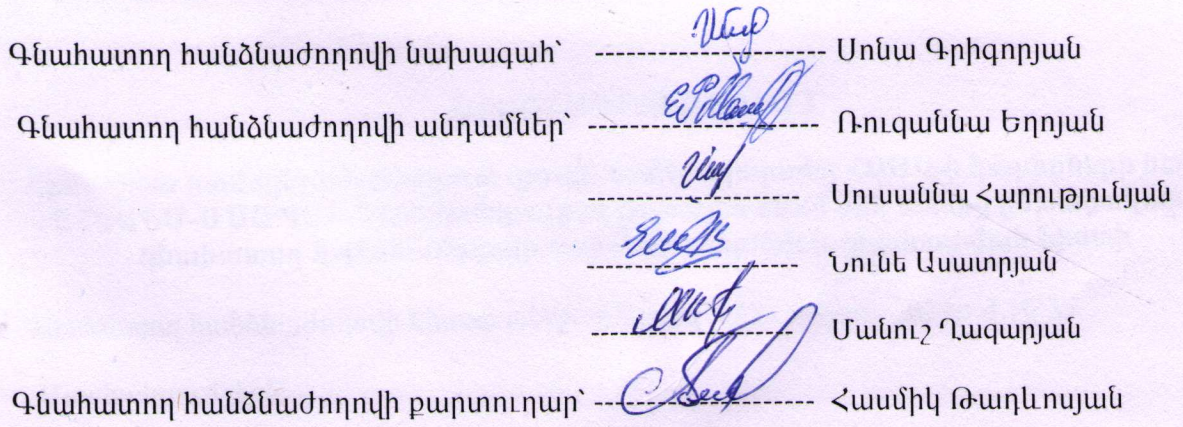 Գնահատող հանձնաժողովի նախագահ՝ ---------------------- Սոնա Գրիգորյան
Գնահատող հանձնաժողովի անդամներ՝ ---------------------- Ռուզաննա Եղոյան
---------------------- Սուսաննա Հարությունյան
---------------------- Նունե Ասատրյան
---------------------- Մանուշ Ղազարյան
Գնահատող հանձնաժողովի քարտուղար՝ ---------------------- Հասմիկ Թադևոսյան